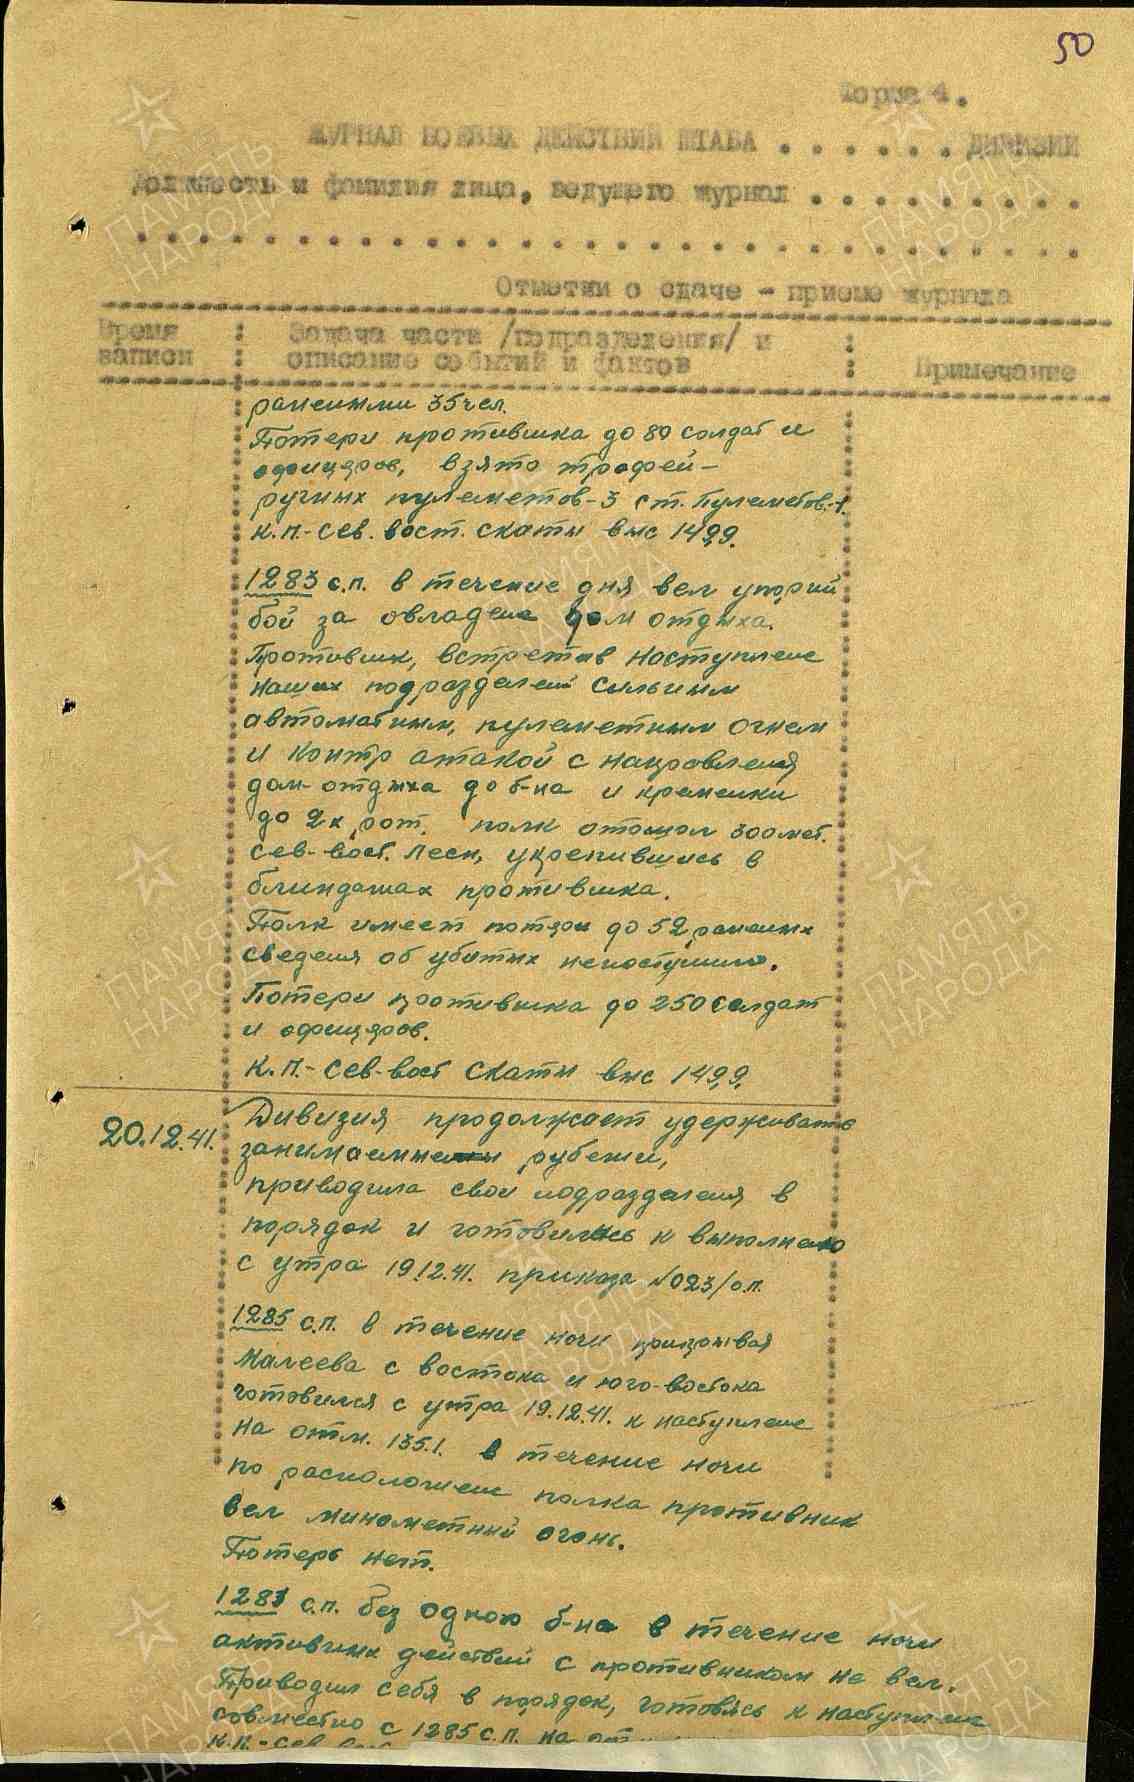 50
Форма 4.
ЖУРНАЛ БОЕВЫХ ДЕЙСТВИЙ ШТАБА . . . . . . . ДИВИЗИИ
Должность и фамилия лица, ведущего журнал . . . . . . . . .
Отметки о сдаче - приеме журнала
Время записи
Задача части /подразделения/ и описание событий и фактов
Примечание
ранеными 35 чел.
Потери противника до 80 солдат и
офицеров, взято трофей-
ручных пулеметов-3 ст. пулеметов-1.
К.П.- сев. вост. скаты выс 149,9.
1283 с.п. в течение дня вел упорный
бой за овладение дом отдыха.
Противник, встретив наступление
наших подразделений сильным
автоматным, пулеметным огнем
и контр атакой с направления
дом-отдыха до б-на и кременки
до 2х рот. полк отошол 300 мет.
сев-вост. леси, укрепившись в
блиндашах противника.
Полк имеет потери до 52 раненых
сведения об убитых непоступило.
Потери противника до 250 солдат
и офицеров.
К.П.- сев-вост скаты выс 149,9.
20.12.41.
Дивизия продолжает удерживать
занимаемые рубежи,
приводила свои подразделения в
порядок и готовилась к выполнению
с утра 19.12.41. приказа №023/о.п.
1285 с.п. в течение ночи прикрывая
Малеева с востока и юго-востока
готовился с утра 19.12.41. к наступление
на отм. 135.1. в течение ночи
по расположен полка противник
вел минометный огонь.
Потерь нет.
1281 с.п. без одного б-на в течение ночи
активных действий с противником не вел.
Приводил себя в порядок, готовясь к наступлению
совместно с 1285 с.п. на
К.П.- сев
ПАМЯТЬ НАРОДА
ПАМЯТЬ НАРОДА
ПАМЯТЬ НАРОДА
ПАМЯТЬ НАРОДА
ПАМЯТЬ НАРОДА
ПАМЯТЬ НАРОДА
ПАМЯТЬ НАРОДА
ПАМЯТЬ НАРОДА